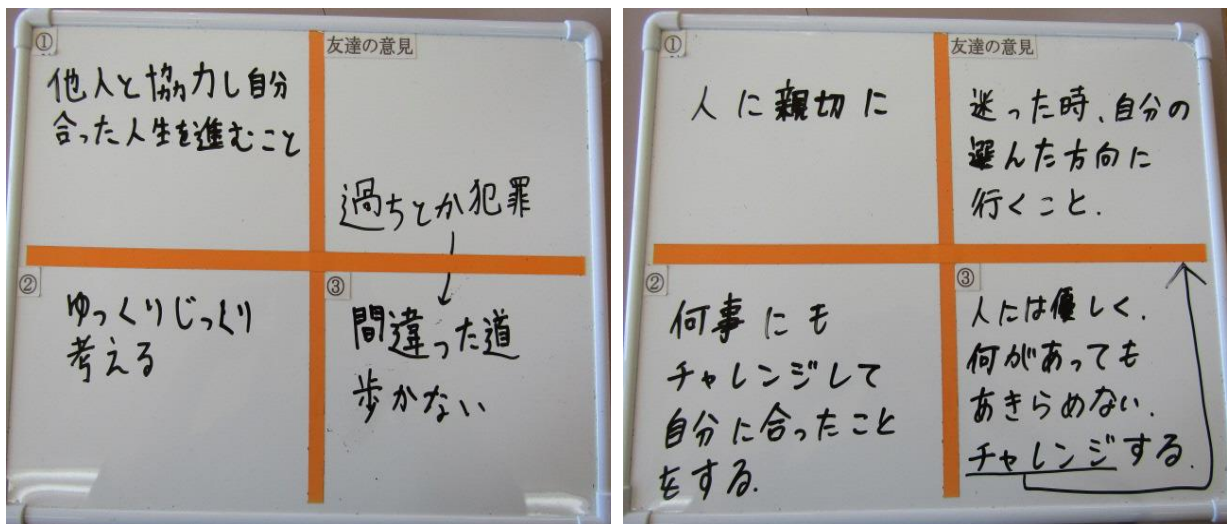 ①
他人と協力し自分
合った人生を進むこと
友達の意見
過ちとか犯罪
②
ゆっくりじっくり
考える
③
間違った道
歩かない
①
人に親切に
友達の意見
迷った時、自分の
選んだ方向に
行くこと.
②
何事にも
チャレンジして
自分に合ったこと
をする.
③
人には優しく.
何があっても
あきらめない.
チャレンジする.